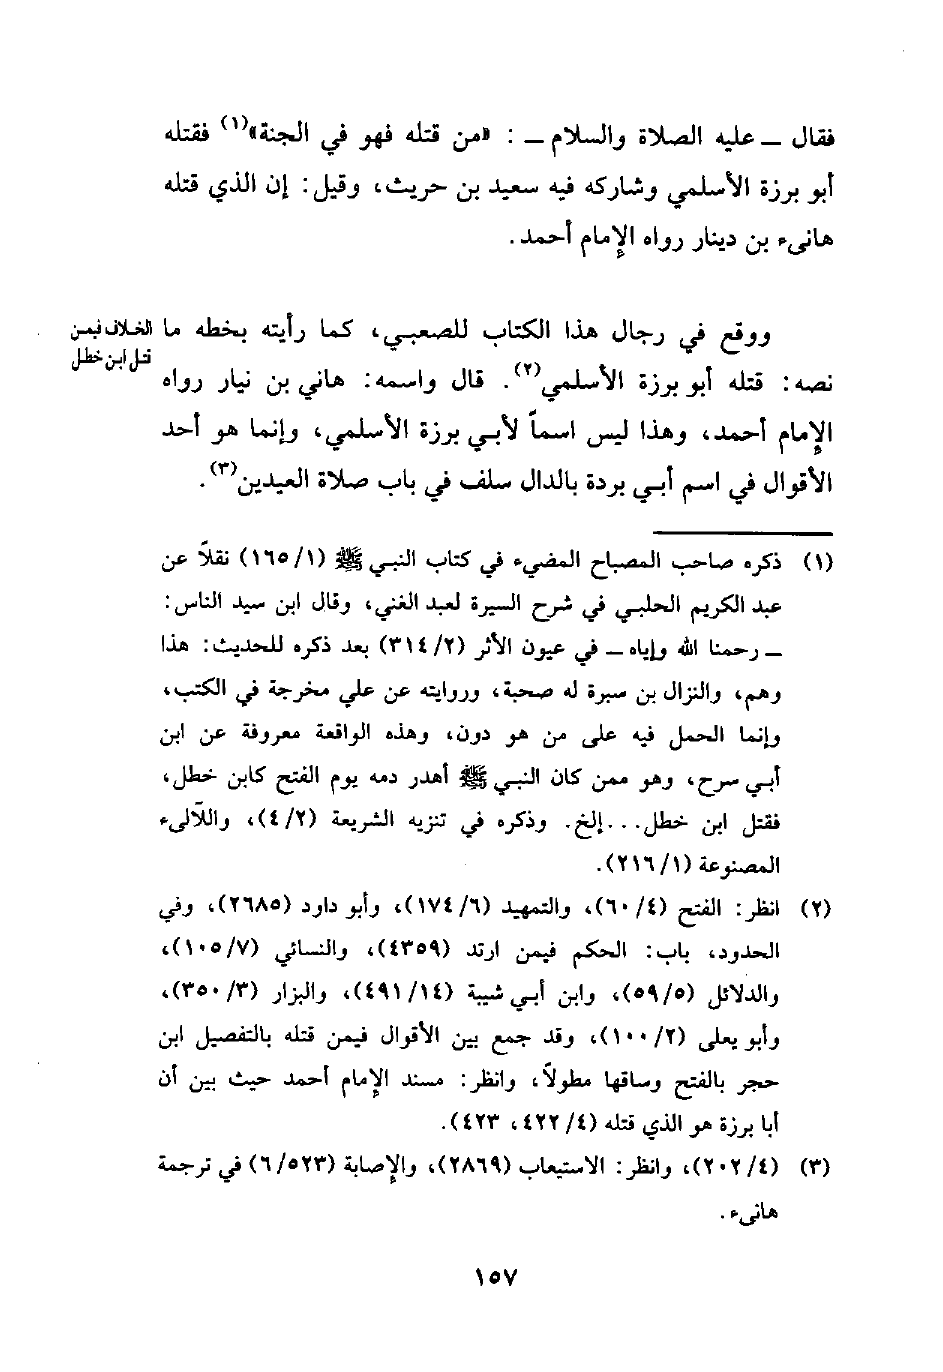 فقال ـ عليه الصلاة والسلام ـ : «من قتله فهو في الجنة»(١) فقتله
أبو برزة الأسلمي وشاركه فيه سعيد بن حريث، وقيل: إن الذي قتله
هانىء بن دينار رواه الإمام أحمد.
الخلاف فيمن
قتل ابن خطل
ووقع في رجال هذا الكتاب للصعبي، كما رأيته بخطه ما
نصه: قتله أبو برزة الأسلمي(٢). قال واسمه: هاني بن نيار رواه
الإمام أحمد، وهذا ليس اسماً لأبي برزة الأسلمي، وإنما هو أحد
الأقوال في اسم أبي بردة بالدال سلف في باب صلاة العيدين(٣).
(١) ذكره صاحب المصباح المضيء في كتاب النبي ﷺ (١/١٦٥) نقلاً عن
عبد الكريم الحلبي في شرح السيرة لعبد الغني، وقال ابن سيد الناس:
ـ رحمنا الله وإياه ـ في عيون الأثر (٢/٣١٤) بعد ذكره للحديث: هذا
وهم، والنزال بن سبرة له صحبة، وروايته عن علي مخرجة في الكتب،
وإنما الحمل فيه على من هو دون، وهذه الواقعة معروفة عن ابن
أبي سرح، وهو ممن كان النبي ﷺ أهدر دمه يوم الفتح كابن خطل،
فقتل ابن خطل... إلخ. وذكره في تنزيه الشريعة (٢/٤)، واللآلىء
المصنوعة (١/٢١٦).
(٢) انظر: الفتح (٤/٦٠)، والتمهيد (٦/١٧٤)، وأبو داود (٢٦٨٥)، وفي
الحدود، باب: الحكم فيمن ارتد (٤٣٥٩)، والنسائي (٧/١٠٥)،
والدلائل (٥/٥٩)، وابن أبي شيبة (١٤/٤٩١)، والبزار (٣/٣٥٠)،
وأبو يعلى (٢/١٠٠)، وقد جمع بين الأقوال فيمن قتله بالتفصيل ابن
حجر بالفتح وساقها مطولاً، وانظر: مسند الإمام أحمد حيث بين أن
أبا برزة هو الذي قتله (٤/٤٢٢، ٤٢٣).
(٣) (٤/٢٠٢)، وانظر: الاستيعاب (٢٨٦٩)، والإصابة (٦/٥٢٣) في ترجمة
هانىء.
١٥٧